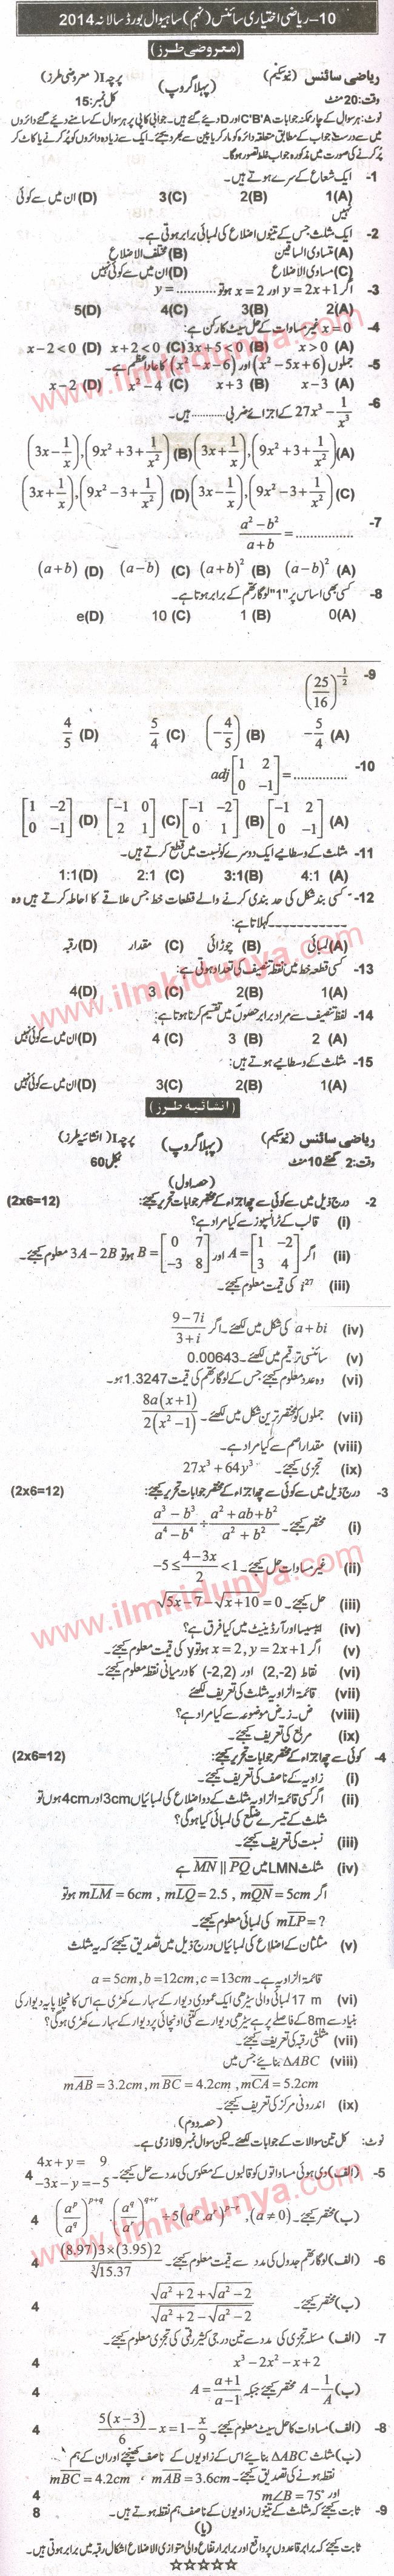 10- ریاضی اختیاری سائنس (نہم) ساہیوال بورڈ سالانہ 2014
(معروضی طرز)
ریاضی سائنس (نیوسکیم) (پہلا گروپ) پرچہ I (معروضی طرز)
وقت: 20 منٹ کل نمبر: 15
نوٹ: ہر سوال کے چار ممکنہ جوابات A'B'C اور D دیئے گئے ہیں۔ جوابی کاپی پر ہر سوال کے سامنے دیئے گئے دائروں
میں سے درست جواب کے مطابق متعلقہ دائرہ کو مارکر یا پین سے بھر دیجئے۔ ایک سے زیادہ دائروں کو پُر کرنے یا کاٹ کر
پُر کرنے کی صورت میں مذکورہ جواب غلط تصور ہوگا۔
1- ایک شعاع کے سرے ہوتے ہیں۔
(A) 1 (B) 2 (C) 3 (D) ان میں سے کوئی نہیں
2- ایک مثلث جس کے تینوں اضلاع کی لمبائی برابر ہوتی ہے۔
(A) متساوی الساقین (B) مختلف الاضلاع
(C) مساوی الاضلاع (D) ان میں سے کوئی نہیں
3- اگر y = 2x+1 اور x = 2 ہو تو y = ............
(A) 2 (B) 3 (C) 4 (D) 5
4- x = 0 غیر مساوات کے حل سیٹ کا رکن ہے:
(A) x > 0 (B) 3x+5 < 0 (C) x+2 < 0 (D) x-2 < 0
5- جملوں (x²-5x+6) اور (x²-x-6) کا عاد اعظم ہے۔
(A) x-3 (B) x+3 (C) x²-4 (D) x-2
6- 27x³ - 1/x³ کے اجزائے ضربی ............ ہیں۔
(A) (3x+1/x),(9x²+3+1/x²) (B) (3x-1/x),(9x²+3+1/x²)
(C) (3x-1/x),(9x²-3+1/x²) (D) (3x+1/x),(9x²-3+1/x²)
7- (a²-b²)/(a+b) = ...............
(A) (a-b)² (B) (a+b)² (C) (a-b) (D) (a+b)
8- کسی بھی اساس پر "1" لوگارتھم کے برابر ہوتا ہے۔
(A) 0 (B) 1 (C) 10 (D) e
9- (25/16)^(-1/2)
(A) -5/4 (B) (-4/5) (C) 5/4 (D) 4/5
10- adj[1 2; 0 -1] = ..............
(A) [-1 2; 0 -1] (B) [-1 -2; 0 1] (C) [-1 0; 2 1] (D) [1 -2; 0 -1]
11- مثلث کے وسطانیے ایک دوسرے کو نسبت میں قطع کرتے ہیں۔
(A) 4:1 (B) 3:1 (C) 2:1 (D) 1:1
12- کسی بند شکل کی حد بندی کرنے والے قطعات خط جس علاقے کا احاطہ کرتے ہیں وہ
---------- کہلاتا ہے:
(A) لمبائی (B) چوڑائی (C) مقدار (D) رقبہ
13- کسی قطعہ خط میں نقطہ تنصیف کی تعداد ہوتی ہے:
(A) 1 (B) 2 (C) 3 (D) 4
14- لفظ تنصیف سے مراد برابر حصوں میں تقسیم کرنا ہوتا ہے:
(A) 2 (B) 3 (C) 4 (D) ان میں سے کوئی نہیں
15- مثلث کے وسطانیے ہوتے ہیں:
(A) 1 (B) 2 (C) 3 (D) ان میں سے کوئی نہیں
(انشائیہ طرز)
ریاضی سائنس (نیوسکیم) (پہلا گروپ) پرچہ I (انشائیہ طرز)
وقت: 2 گھنٹے 10 منٹ کل نمبر 60
(حصہ اول)
2- درج ذیل میں سے کوئی سے چھ اجزاء کے مختصر جوابات تحریر کیجئے: (2x6=12)
(i) قالب کے ٹرانسپوز سے کیا مراد ہے؟
(ii) اگر A = [1 -2; 3 4] اور B = [0 7; -3 8] ہو تو 3A-2B معلوم کیجئے۔
(iii) i²⁷ کی قیمت معلوم کیجئے۔
(iv) a+bi کی شکل میں لکھئے۔ اگر (9-7i)/(3+i)
(v) سائنسی ترقیم میں لکھئے۔ 0.00643
(vi) وہ عدد معلوم کیجئے جس کے لوگارتھم کی قیمت 1.3247 ہو۔
(vii) جملوں کو مختصر ترین شکل میں لکھئے۔ 8a(x+1)/2(x²-1)
(viii) مقدار اصم سے کیا مراد ہے۔
(ix) تجزی کیجئے۔ 27x³+64y³
3- درج ذیل میں سے کوئی سے چھ اجزاء کے مختصر جوابات تحریر کیجئے: (2x6=12)
(i) مختصر کیجئے۔ (a³-b³)/(a⁴-b⁴) ÷ (a²+ab+b²)/(a²+b²)
(ii) غیر مساوات حل کیجئے۔ -5 ≤ (4-3x)/2 < 1
(iii) حل کیجئے۔ √(5x-7) - √(x+10) = 0
(iv) ایبسیسا اور آرڈینیٹ میں کیا فرق ہے؟
(v) اگر x = 2, y = 2x+1 ہو تو y کی قیمت معلوم کیجئے۔
(vi) نقاط (2,-2) اور (-2,2) کا درمیانی نقطہ معلوم کیجئے۔
(vii) قائمۃ الزاویہ مثلث کی تعریف لکھئے
(viii) ض۔ز۔ض موضوعہ سے کیا مراد ہے؟
(ix) مربع کی تعریف کیجئے۔
4- کوئی سے چھ اجزاء کے مختصر جوابات تحریر کیجئے: (2x6=12)
(i) زاویہ کے ناصف کی تعریف کیجئے۔
(ii) اگر کسی قائمۃ الزاویہ مثلث کے دو اضلاع کی لمبائیاں 3cm اور 4cm ہوں تو
مثلث کے تیسرے ضلع کی لمبائی کیا ہوگی؟
(iii) نسبت کی تعریف کیجئے۔
(iv) مثلث LMN میں MN || PQ ہے
اگر mLM = 6cm , mLQ = 2.5 , mQN = 5cm ہو تو
mLP = ? کی لمبائی معلوم کیجئے۔
(v) مثلثان کے اضلاع کی لمبائیاں درج ذیل میں تصدیق کیجئے کہ یہ مثلث
قائمۃ الزاویہ ہے۔ a = 5cm, b = 12cm, c = 13cm
(vi) 17 m لمبائی والی سیڑھی ایک عمودی دیوار کے سہارے کھڑی ہے اس کا نچلا پایہ دیوار کی
بنیاد سے 8m کے فاصلے پر ہے سیڑھی دیوار سے کتنی اونچائی پر دیوار کے سہارے کھڑی ہوگی؟
(vii) مثلثی رقبہ کی تعریف کیجئے۔
(viii) ΔABC بنائیے جس میں
mAB = 3.2cm, mBC = 4.2cm, mCA = 5.2cm
(ix) اندرونی مرکز کی تعریف کیجئے۔
(حصہ دوم)
نوٹ: کل تین سوالات کے جوابات لکھئے۔ لیکن سوال نمبر 9 لازمی ہے۔
5- (الف) دی ہوئی مساواتوں کو قالبوں کے معکوس کی مدد سے حل کیجئے۔ 4x+y = 9 -3x-y = -5 4
(ب) مختصر کیجئے۔ (aᵖ/a^q)^(p+q) . (a^q/aʳ)^(q+r) ÷ 5(aᵖ.aʳ)^(p-r), (a≠0) 4
6- (الف) لوگارتھم جدول کی مدد سے قیمت معلوم کیجئے۔ (8.97)3×(3.95)2/∛15.37 4
(ب) مختصر کیجئے۔ (√(a²+2)+√(a²-2))/(√(a²+2)-√(a²-2)) 4
7- (الف) مسئلہ تجزی کی مدد سے تین درجی کثیر رقمی کی تجزی معلوم کیجئے۔
x³-2x²-x+2 4
(ب) A - 1/A مختصر کیجئے جبکہ A = (a+1)/(a-1) 4
8- (الف) مساوات کا حل سیٹ معلوم کیجئے۔ 5(x-3)/6 - x = 1 - x/9 4
(ب) مثلث ΔABC بنائیے اس کے زاویوں کے ناصف کھینچئے اور ان کے ہم
نقطہ ہونے کی تصدیق کیجئے۔ mAB = 3.6cm ، mBC = 4.2cm
اور m∠B = 75° 4
9- ثابت کیجئے کہ مثلث کے تینوں زاویوں کے ناصف ہم نقطہ ہوتے ہیں۔ 8
(یا)
ثابت کیجئے کہ برابر قاعدوں پر واقع اور برابر ارتفاع والی متوازی الاضلاع اشکال رقبہ میں برابر ہوتی ہیں۔
☆☆☆☆☆
www.ilmkidunya.com
www.ilmkidunya.com
www.ilmkidunya.com
www.ilmkidunya.com